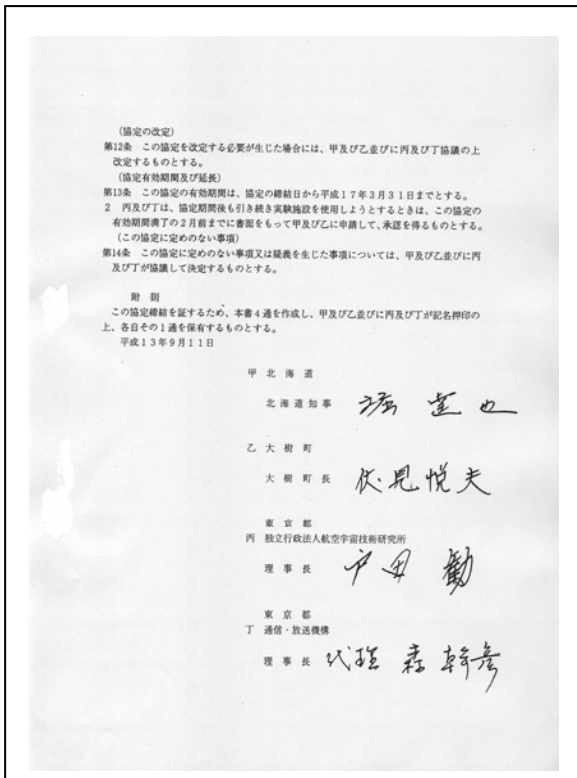 （協定の改定）
第12条　この協定を改定する必要が生じた場合には、甲及び乙並びに丙及び丁協議の上
改定するものとする。
（協定有効期間及び延長）
第13条　この協定の有効期間は、協定の締結日から平成１７年３月３１日までとする。
２　丙及び丁は、協定期間後も引き続き実験施設を使用しようとするときは、この協定の
有効期間満了の２月前までに書面をもって甲及び乙に申請して、承認を得るものとする。
（この協定に定めのない事項）
第14条　この協定に定めのない事項又は疑義を生じた事項については、甲及び乙並びに丙
及び丁が協議して決定するものとする。
附　則
この協定締結を証するため、本書４通を作成し、甲及び乙並びに丙及び丁が記名押印の
上、各自その１通を保有するものとする。
平成１３年９月１１日
甲　北　海　道
北海道知事　堀　達也
乙　大　樹　町
大　樹　町　長　伏見悦夫
東　京　都
丙　独立行政法人航空宇宙技術研究所
理　事　長　戸田　勧
東　京　都
丁　通信・放送機構
理　事　長　代理　森　幹彦